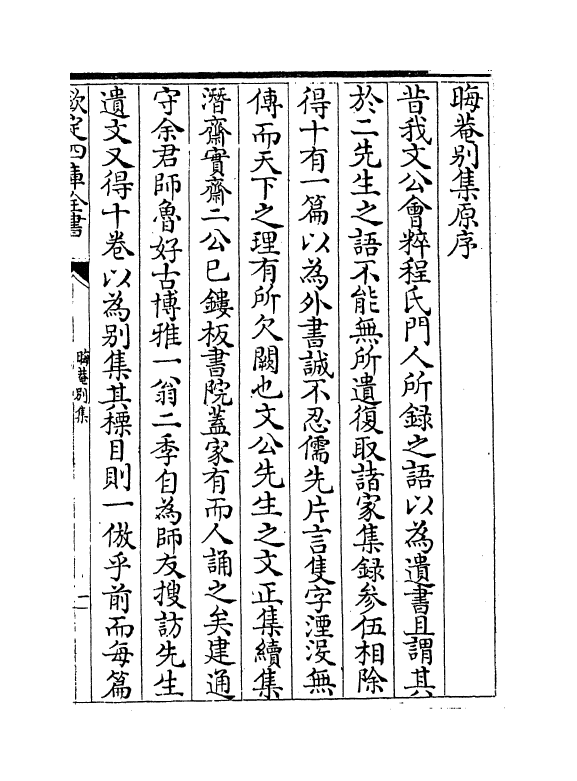 晦菴别集原序
昔我文公會粹程氏門人所録之語以為遺書且謂其
於二先生之語不能無所遺復取諸家集録参伍相除
得十有一篇以為外書誠不忍儒先片言隻字湮没無
傳而天下之理有所欠闕也文公先生之文正集續集
潛齋實齋二公已鏤板書院蓋家有而人誦之矣建通
守余君師魯好古博雅一翁二季自為師友搜訪先生
遺文又得十卷以為别集其標目則一倣乎前而每篇
欽定四庫全書
晦菴别集
一